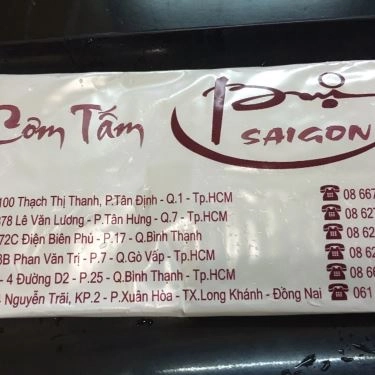 Cơm Tấm Bụi
SAIGON
100 Thạch Thị Thanh, P.Tân Định - Q.1 - Tp.HCM ☎ 08 667
378 Lê Văn Lương - P.Tân Hưng - Q.7 - Tp.HCM ☎ 08 627
72C Điện Biên Phủ - P.17 - Q.Bình Thạnh ☎ 08 62
3B Phan Văn Trị - P.7 - Q.Gò Vấp - Tp.HCM ☎ 08 62
- 4 Đường D2 - P.25 - Q.Bình Thạnh - Tp.HCM ☎ 08 6
Nguyễn Trãi, KP.2 - P.Xuân Hòa - TX.Long Khánh - Đồng Nai ☎ 061